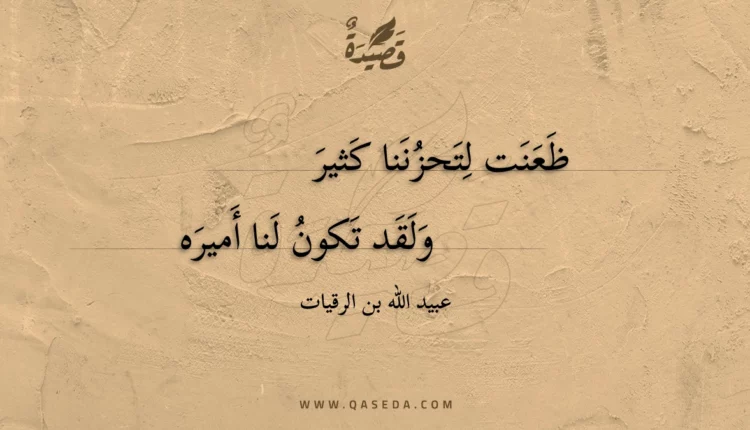 قَصِيدَةٌ
ظَعَنَت لِتَحزُنَنا كَثيرَ
وَلَقَد تَكونُ لَنا أَميرَه
عبيد الله بن الرقيات
WWW.QASEDA.COM